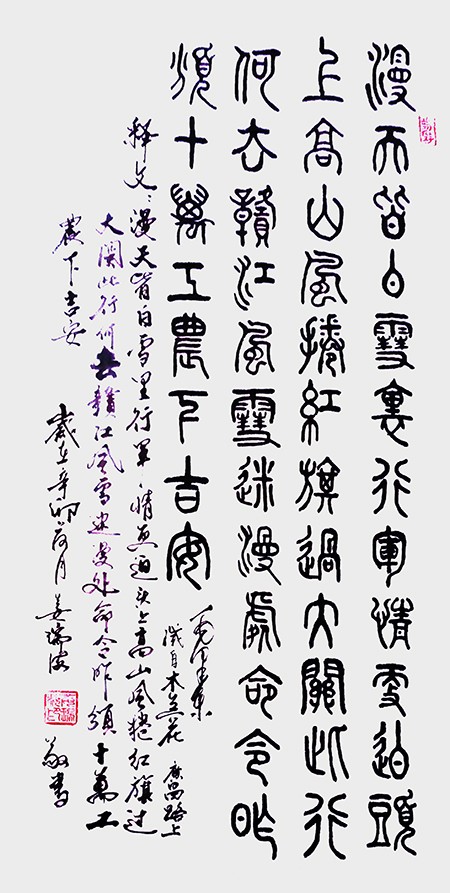 漫天皆白雪裏行軍情更迫頭
上高山風捲紅旗過大關此行
何去贛江風雪迷漫處命令昨
頒十萬工農下吉安
毛泽东
減自木兰花 廣昌路上
释文：漫天皆白雪里行军、情更迫头上高山风捲红旗过
大関此行何去赣江风雪迷漫处命令昨颁十萬工
農下吉安
歲在辛卯荷月姜瑞海
敬书